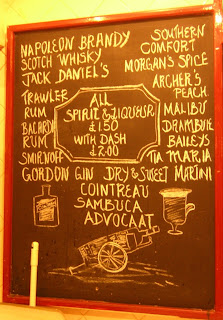 NAPOLEON BRANDY
SCOTCH WHISKY
JACK DANIEL'S
TRAWLER
RUM
BACARDI
RUM
SMIRNOFF
SOUTHERN
COMFORT
MORGAN'S SPICE
ARCHER'S
PEACH
MALIBU
DRAMBUIE
BAILEYS
TIA MARIA
ALL
SPIRIT & LIQUEUR
£1.50
WITH DASH
£2.00
GORDON GIN DRY & SWEET MARTINI
COINTREAU
SAMBUCA
ADVOCAAT